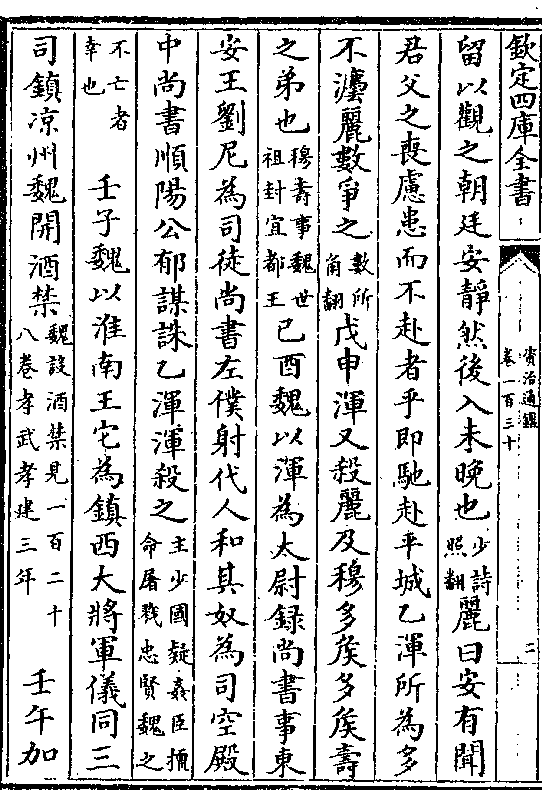 欽定四庫全書
資治通鑑
卷一百三十
二
留以觀之朝廷安靜然後入未晚也少詩照翻麗曰安有聞
君父之喪慮患而不赴者乎即馳赴平城乙渾所為多
不灋麗數爭之數所角翻戊申渾又殺麗及穆多侯多侯壽
之弟也穆壽事魏世祖封宜都王己酉魏以渾為太尉錄尚書事東
安王劉尼為司徒尚書左僕射代人和其奴為司空殿
中尚書順陽公郁謀誅乙渾渾殺之主少國疑姦臣擅命屠戮忠賢魏之
不亡者幸也壬子魏以淮南王它為鎮西大將軍儀同三
司鎮凉州魏開酒禁魏設酒禁見一百二十八卷孝武孝建三年壬午加